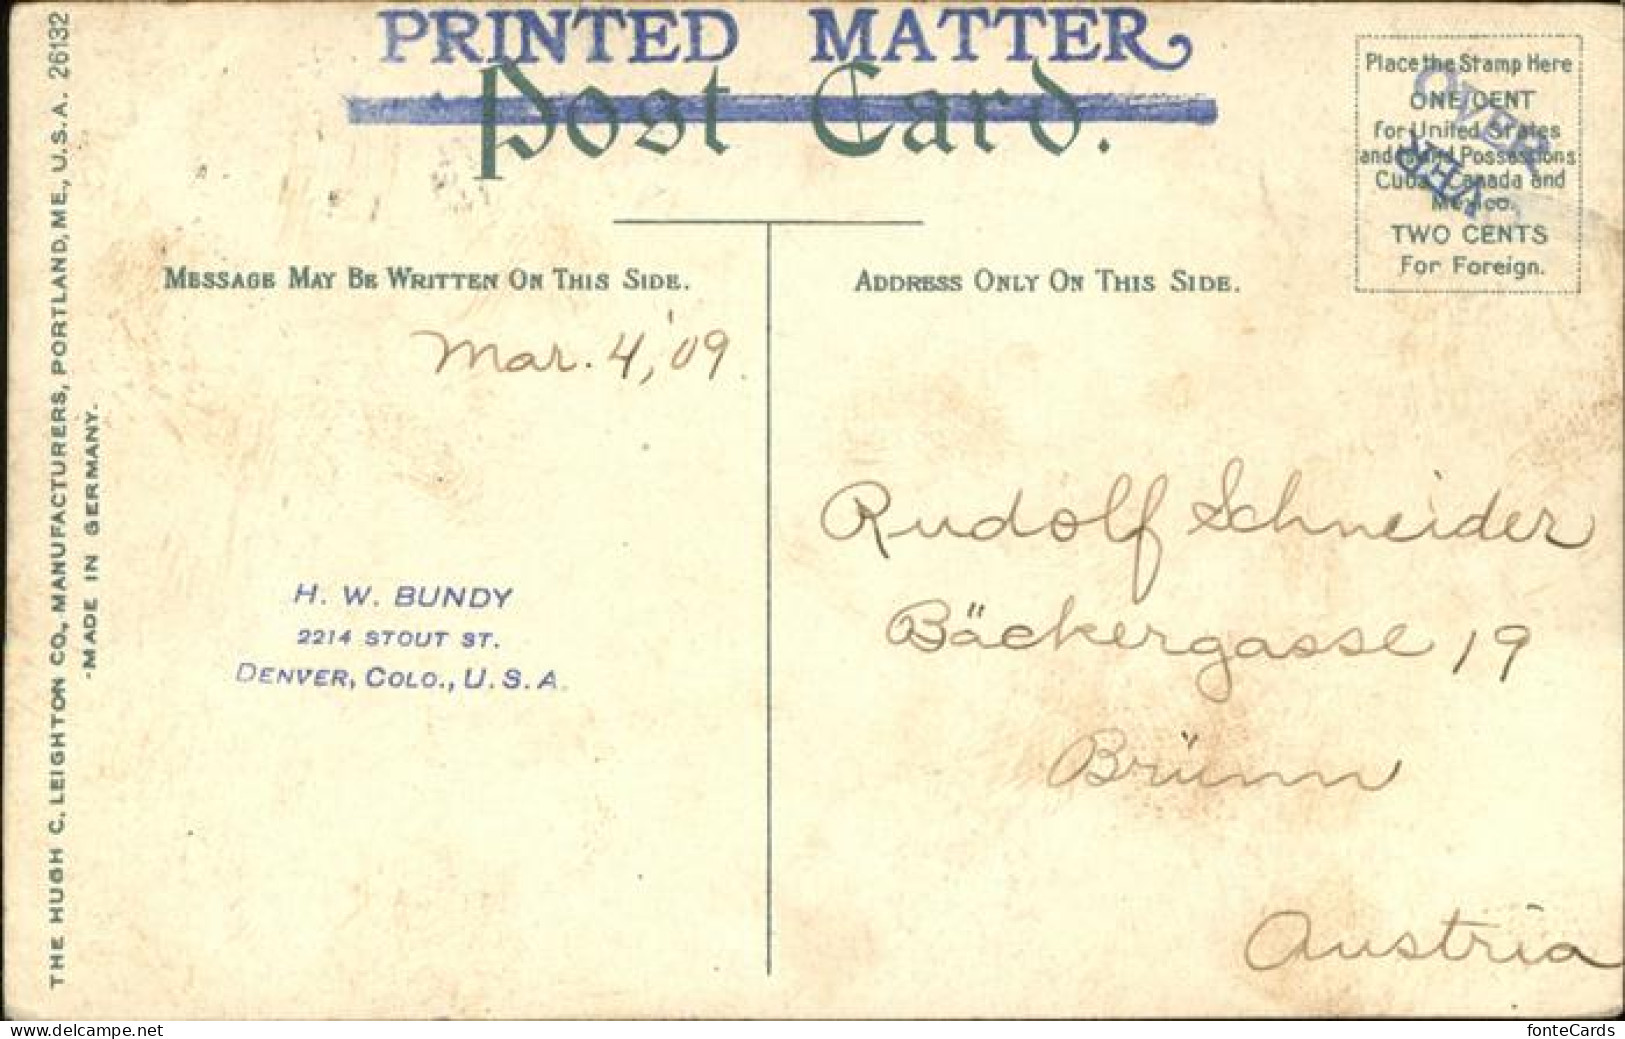 PRINTED MATTER
Post Card.
Place the Stamp Here
ONE CENT
for United States
and Island Possessions
Cuba, Canada and
Mexico.
TWO CENTS
For Foreign.
OVER
MESSAGE MAY BE WRITTEN ON THIS SIDE.
ADDRESS ONLY ON THIS SIDE.
Mar. 4, '09
H. W. BUNDY
2214 STOUT ST.
DENVER, COLO., U. S. A.
Rudolf Schneider
Bäckergasse 19
Brünn
Austria
THE HUGH C. LEIGHTON CO., MANUFACTURERS, PORTLAND, ME., U.S.A. 26132
-MADE IN GERMANY.
delcampe.net
fonteCards